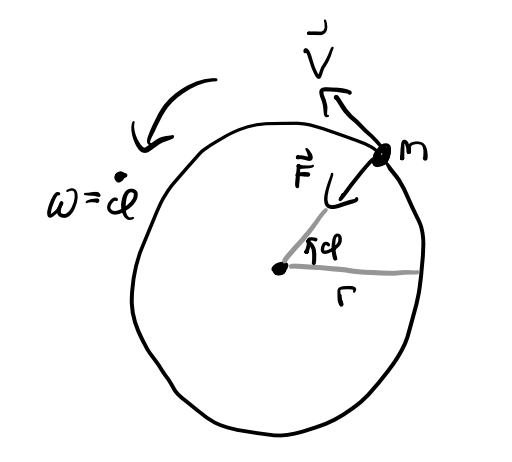 V⃗
m
F⃗
ω = φ̇
φ
r